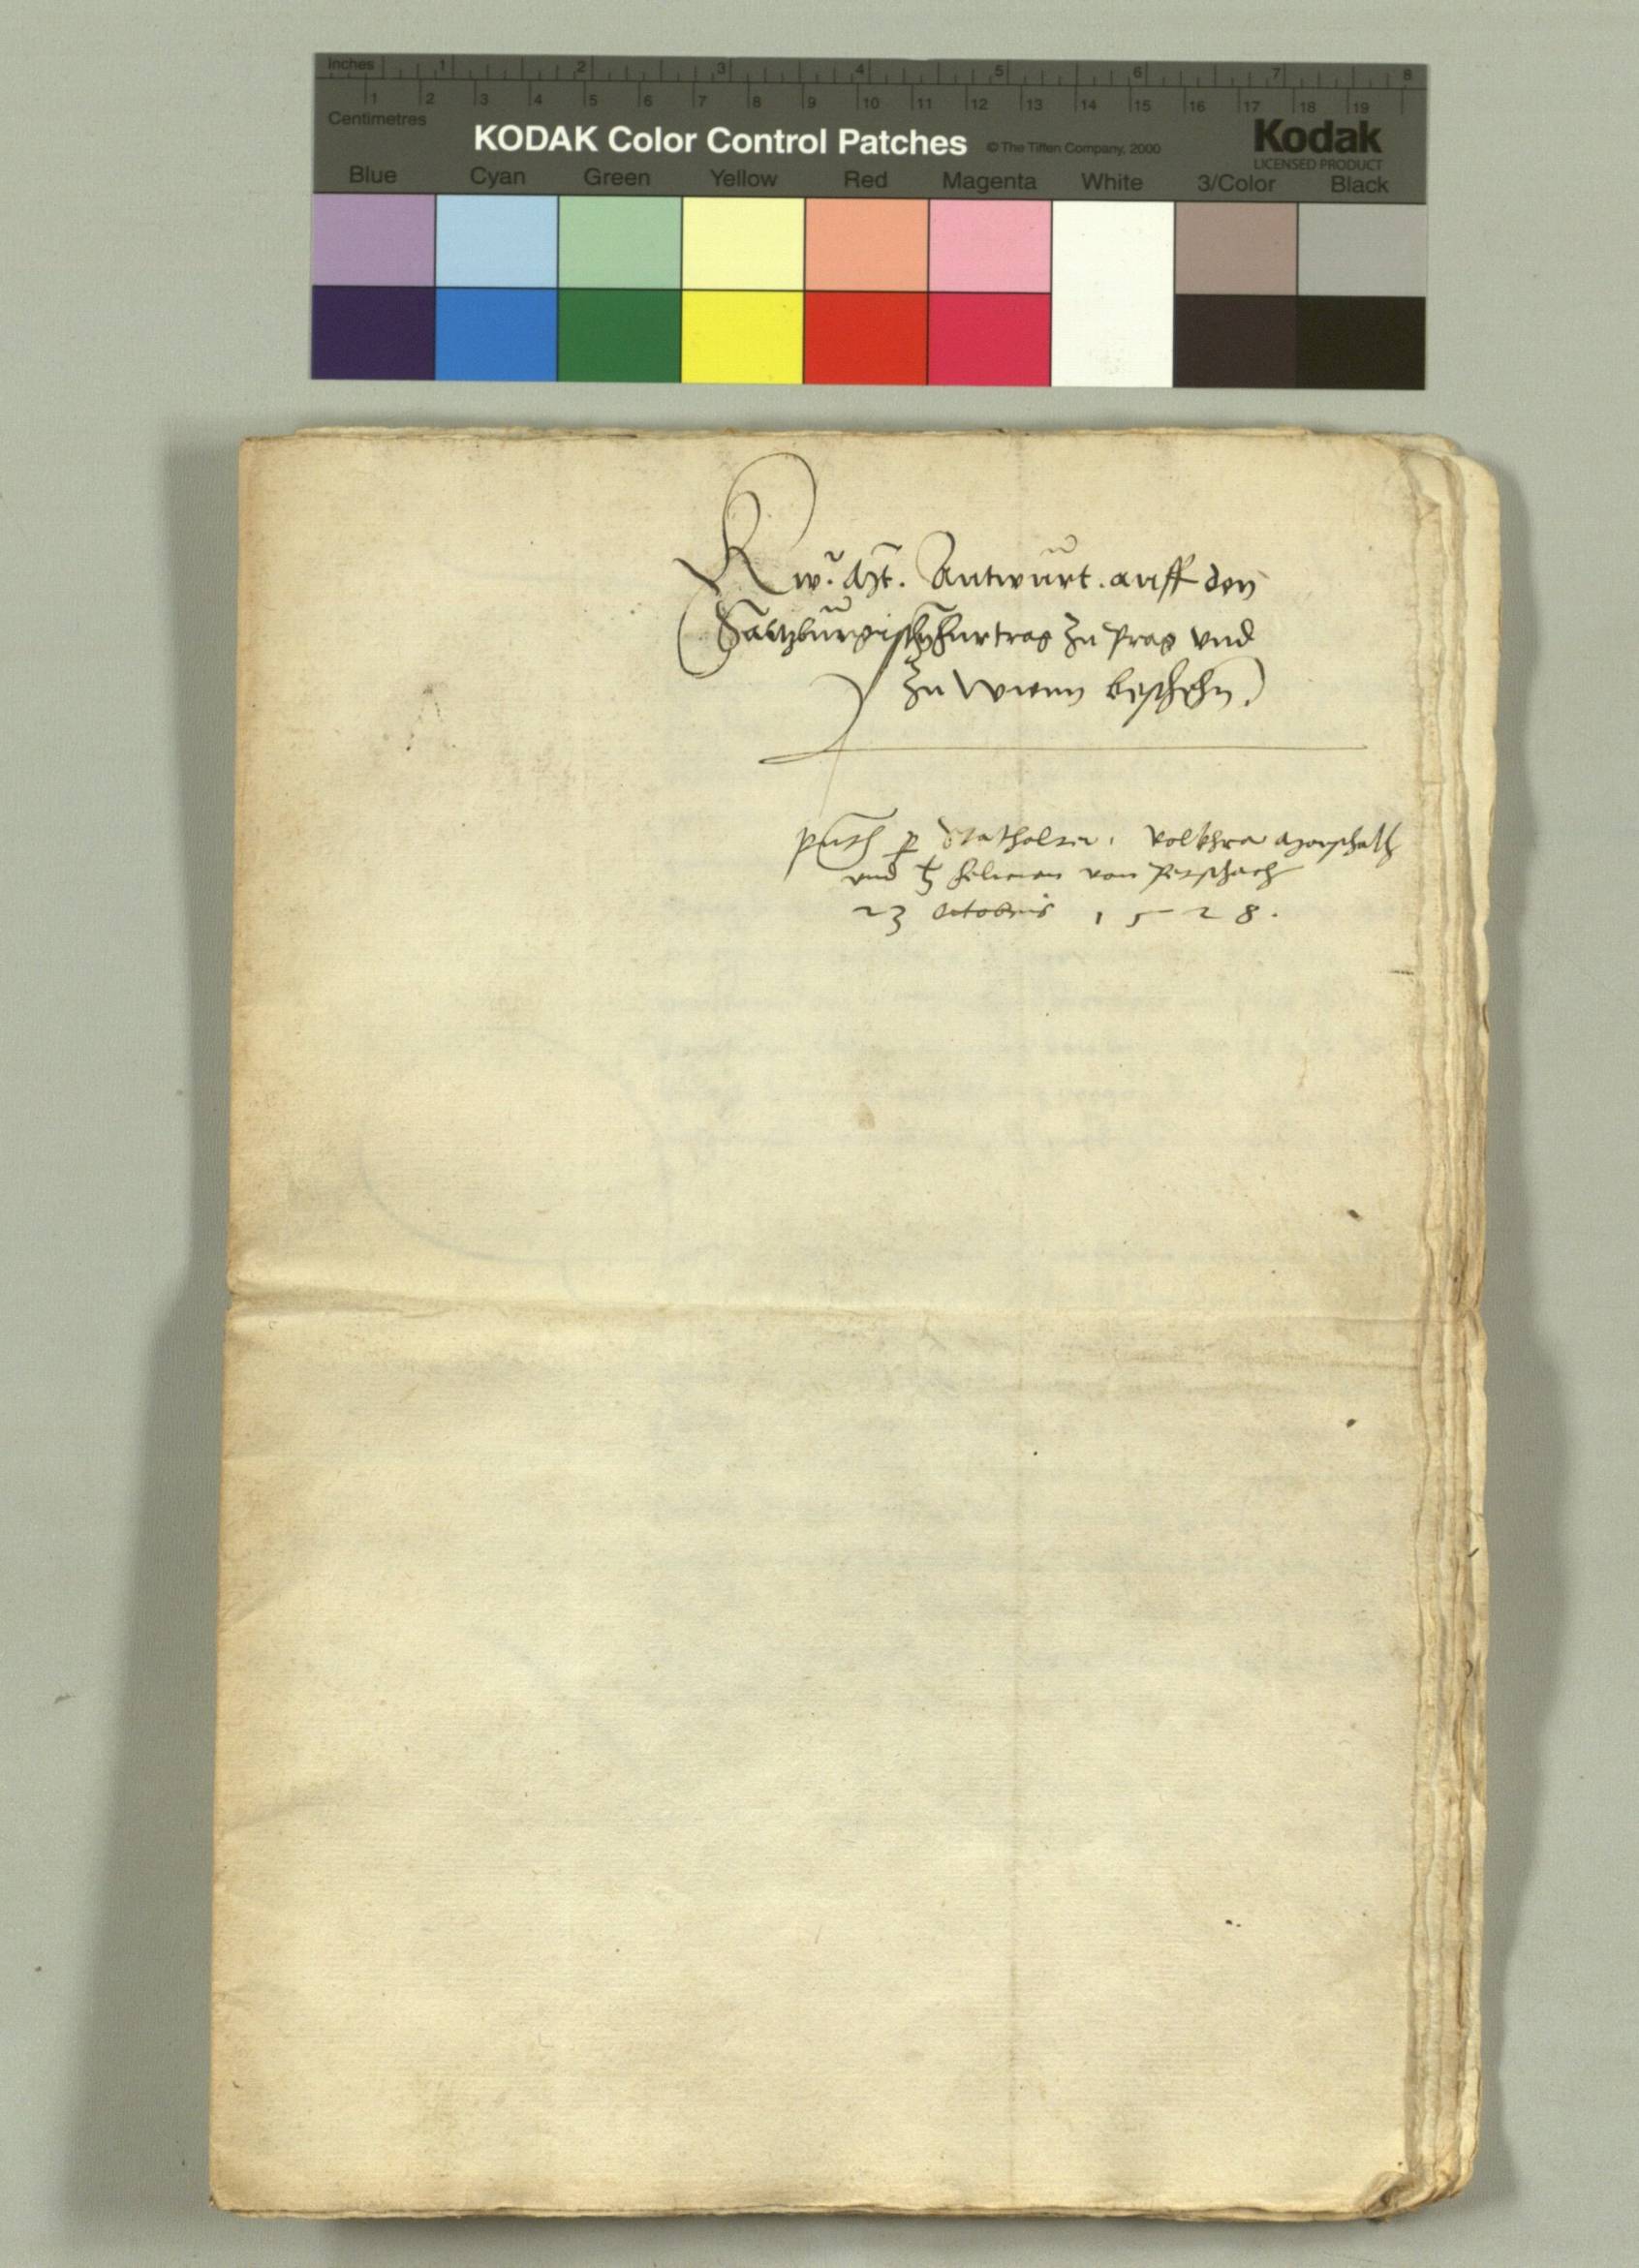 Inches 1 2 3 4 5 6 7 8
1 2 3 4 5 6 7 8 9 10 11 12 13 14 15 16 17 18 19
Centimetres
KODAK Color Control Patches © The Tiffen Company, 2000 Kodak
LICENSED PRODUCT
Blue Cyan Green Yellow Red Magenta White 3/Color Black
Kͧ. Mt. Antwurt. auff den
Saltzburgischn furtrag zu Prag und
zu Wienn beschehn.
p Stathalter. Volkhra Marschalh
und h felician von Petschach
23 Octobris 1528.